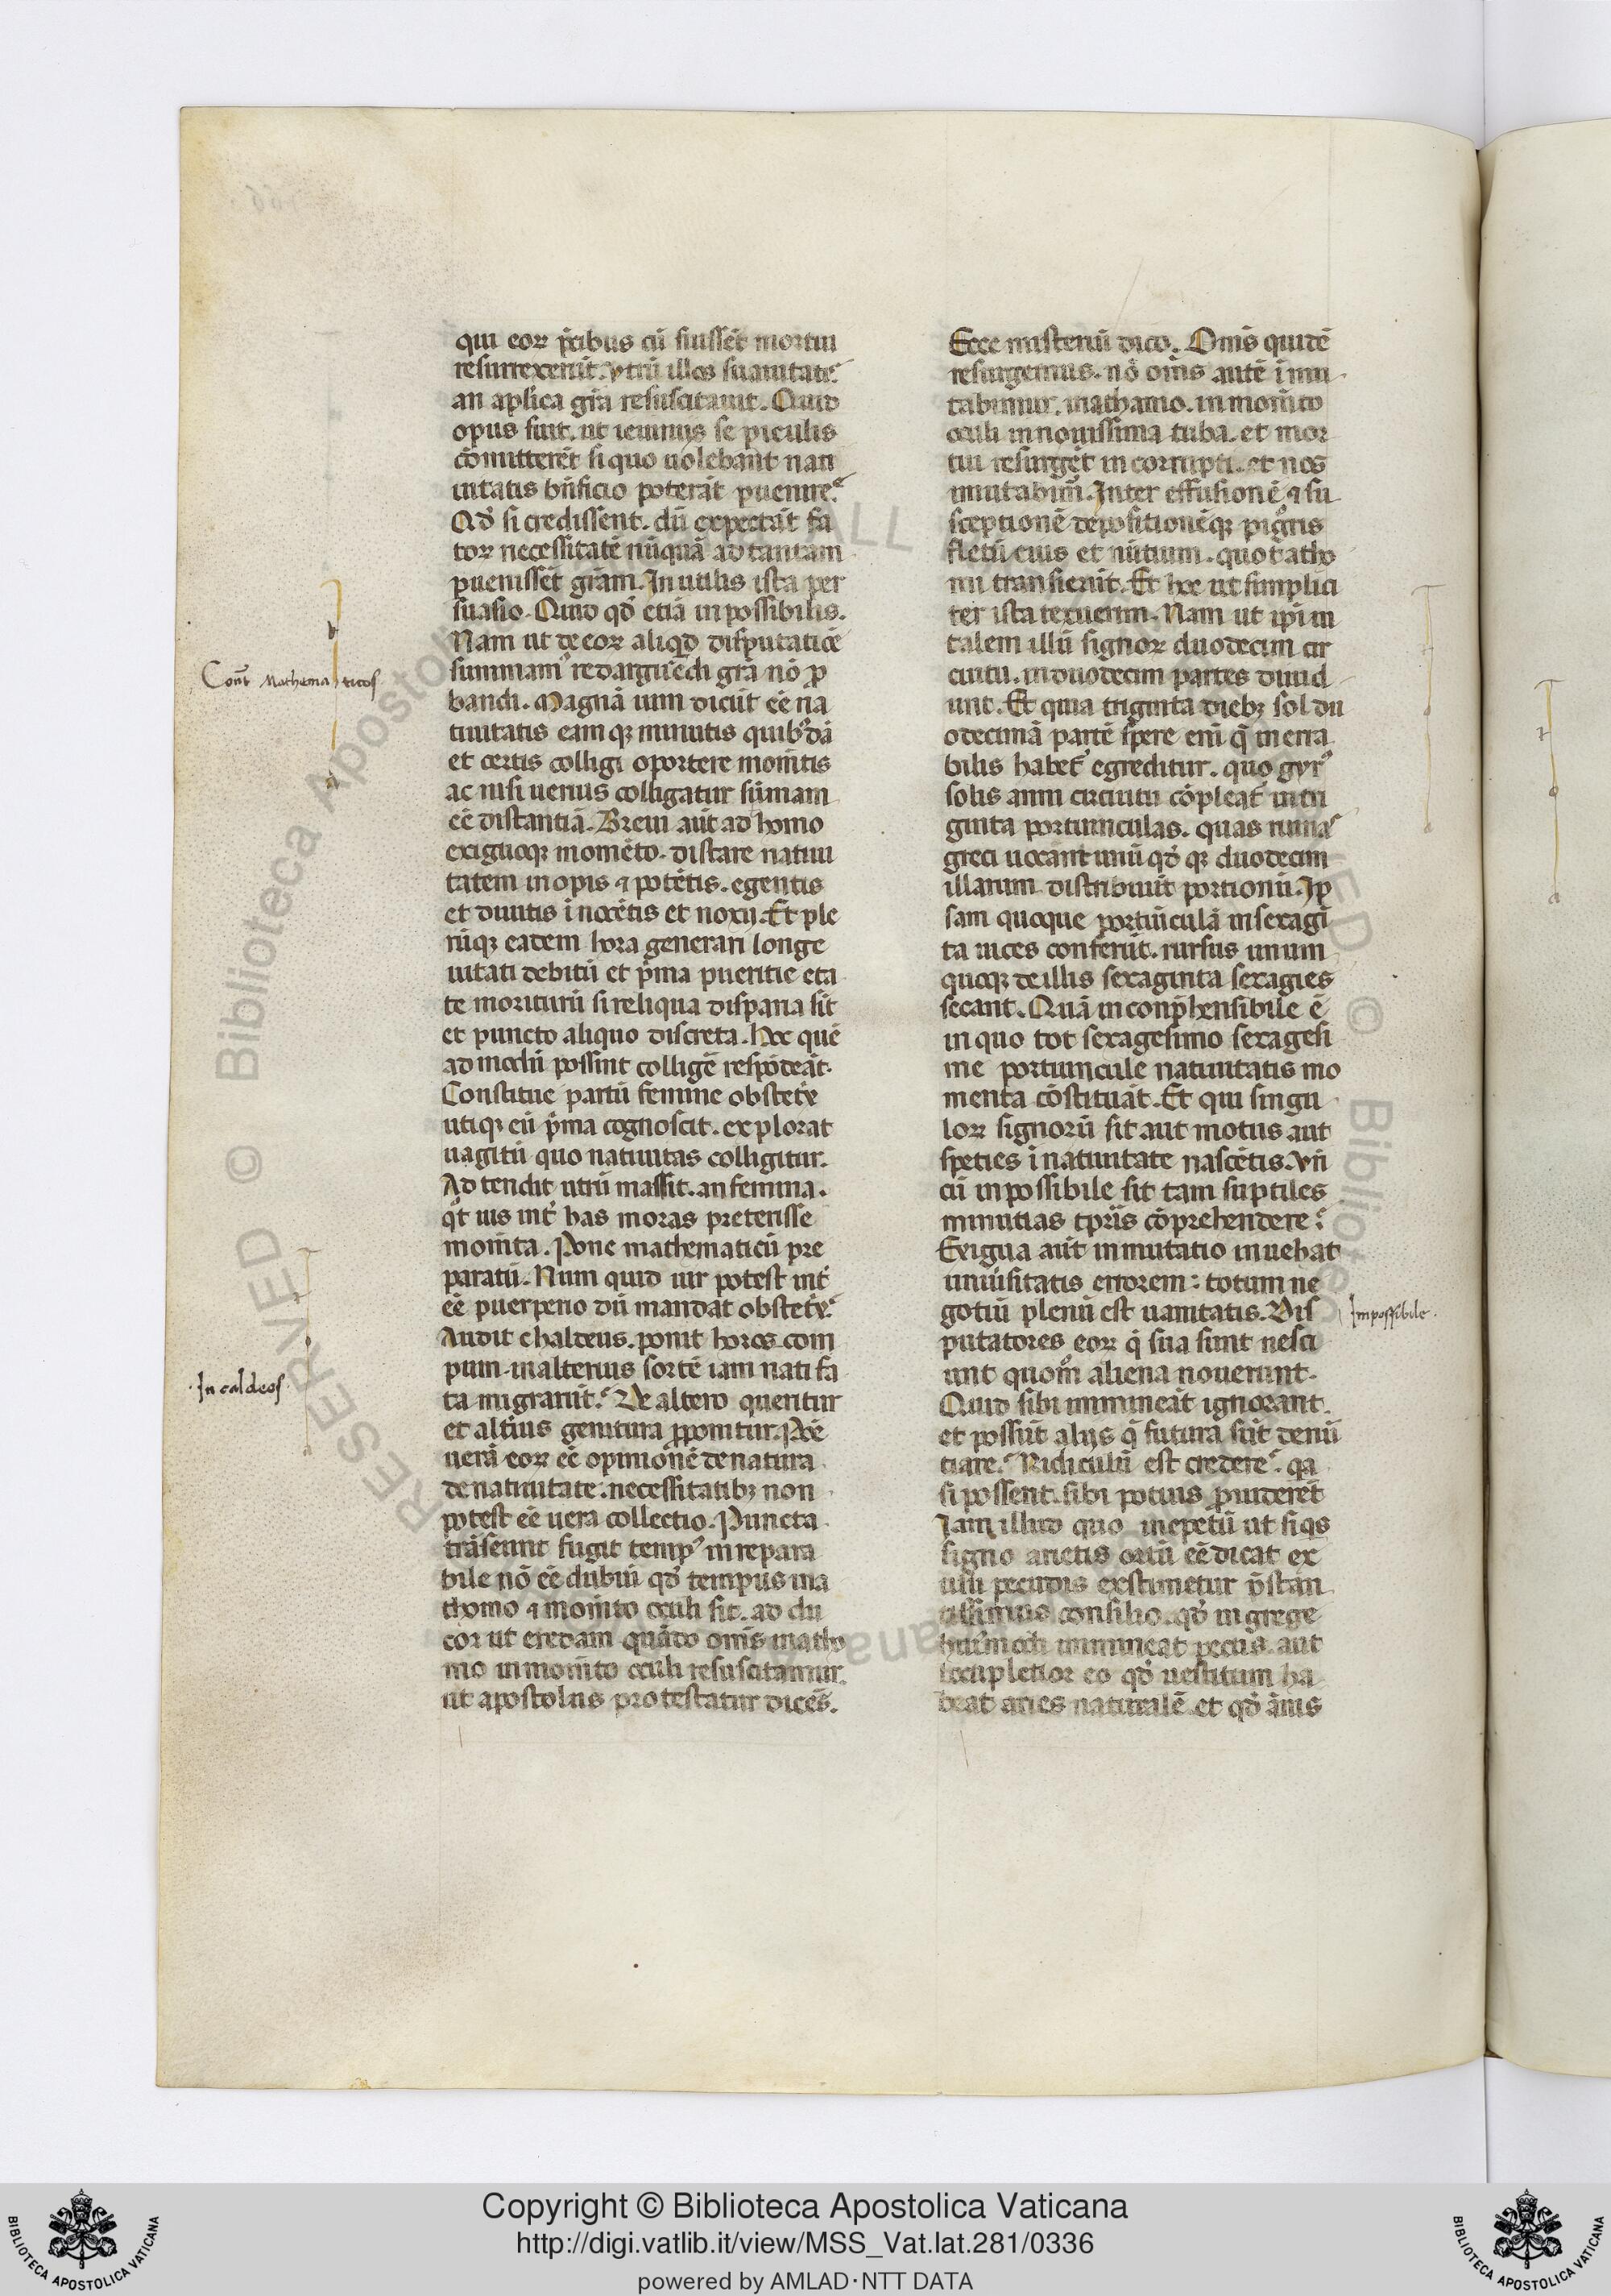 qui eoꝝ p̄cibus cū fuissēt mortui
resurrexerūt. vtrū illos suauitate
an aplica gr̄a resuscitauit. Quid
opus fuit. ut ieiuniis se piculis
cōmitterēt si quo uolebant nati
uitatis bn̄ficio poterāt puenire.
Qd̄ si credissent. dū expectāt fa
toꝝ necessitatē nūquā ad tantam
puenissēt grām. In utilis ista per
suasio. Quid qd̄ etiā inpossibilis.
Nam ut de eoꝝ aliqd disputatiōe
summam redarguēdi grā nō ꝓ
bandi. Magnā uim dicūt eē na
tiuitatis eamqꝫ minutis quibꝰdā
et certis colligi oportere momētis
ac nisi uerius colligatur sūmam
eē distantiā. Breui aūt adhomo
exiguoqꝫ momēto. distare natiui
tatem inopis ⁊ potētis. egentis
et diuitis inocētis et noxij. Et ple
rūqꝫ eadem hora generari longe
uitati debitū et p̄ma pueritie eta
te moriturū si reliqua disparia sīt
et puncto aliquo discreta. Hoc quē
admodū possint colligē respōdeāt.
Constitue partū femine obstetꝝ
utiqꝫ eū p̄ma cognoscit. explorat
uagitū quo natiuitas colligitur.
Ad tendit utrū massit. an femina.
qͦt uis int̄ has moras preterisse
momīta. Pone mathematicū pre
paratū. Num quid uir potest int̄
eē puerperio dū mandat obstetꝝ
Audit chaldeus. ponit horos com
pum. inalterius sortē iam nati fa
ta migrarūt. De altero queritur
et altīus genitura ꝓponitur. Poē
uerā eoꝝ eē opinionē de natura
de natiuitate. necessitatibꝫ non
potest eē uera collectio. Puncta
trāseunt fugit tempꝰ inrepara
bile nō eē dubiū qd̄ tempus ina
thomo ⁊ momīto oculi sit. ad du
cor ut credam quādo om̄is inatho
mo in momīto oculi resuscitamur.
ut apostolus protestatur dicēs.
Conͭ Mathematicos
·In caldeos·
Ecce misteriū dico. Om̄s quidē
resurgemus. nō om̄s autē imu
tabimur. inathamo. in momīto
oculi in nouissima tuba. et mor
tui resurgēt incorrupti. et nos
mutabim̄. Inter effusionē ⁊ su
sceptionē depositionēqꝫ pigͦris
fletū eius et nūtium. quot atho
mi transierūt. Et hoc ut simplici
ter ista texuerim. Nam ut ip̄i in
talem illū signoꝝ duodecim cir
cuitu. in duodecim partes diuid
unt. Et quia triginta diebꝫ sol du
odecimā partē spere eni q̄ inerra
bilis habet̄ egreditur. quo gyrꝰ
solis anni circuitu cōpleat̄ in tri
ginta portiunculas. quas
greci uocant unū qd̄ qꝫ duodecim
illarum distribuūt portionū. Ip
sam quoque portiūculā in sexagī
ta uices conferūt. rursus unum
quoqꝫ de illis sexaginta sexagies
secant. Quā inconp̄hensibile ē
in quo tot sexagesimo sexagesi
me portiuncule natiuitatis mo
menta cōstituāt. Et qui singu
loꝝ signorū sit aut motus aut
speties inatiuitate nascētis. vn̄
cū inpossibile sit tam suptiles
minutias tꝑris cōprehendere.
Exigua aūt inmutatio inuehat
uniūsitatis errorem: totum ne
gotiū plenū est uanitatis. Dis
putatores eoꝝ q̄ sua sunt nesci
unt quom̄ aliena nouerunt.
Quid sibi immineāt ignorant.
et possūt alijs q̄ futura sūt denū
tiare. Ridiculū est credere. qa
si possent. sibi potius ꝓuiderēt
Iam illud quo inepetū ut siqs
signo arietis ortū eē dicat ex
usu pecudis exstimetur p̄stan
tissimus consilio. qd̄ in grege
huiꝰmodi immineat pecus. aut
locupletior eo qd̄ uestitum ha
beat aries naturalē. et qd̄ ānis
Impossibile.
Copyright © Biblioteca Apostolica Vaticana
http://digi.vatlib.it/view/MSS_Vat.lat.281/0336
powered by AMLAD·NTT DATA
BIBLIOTECA APOSTOLICA VATICANA
BIBLIOTECA APOSTOLICA VATICANA